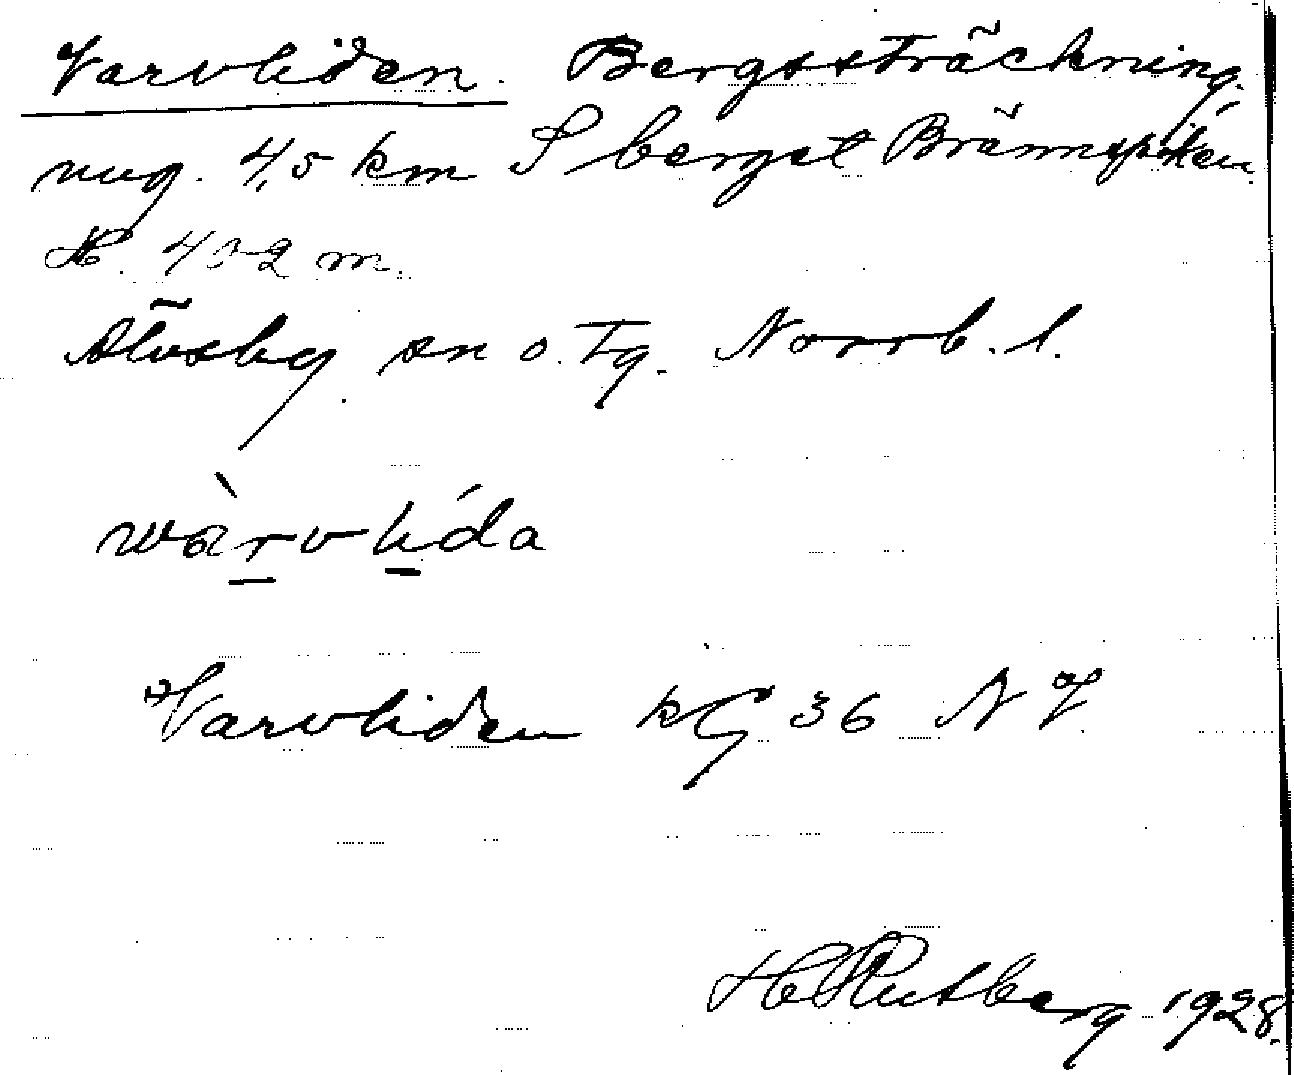 Varvliden. Bergssträckning
ung. 4,5 km S berget Brännspiken.
H. 432 m.
Älvsby sn o. Tg. Norrb. l.
wàrvlída
"Varvliden kG 36 N V
H Rutberg 1928.